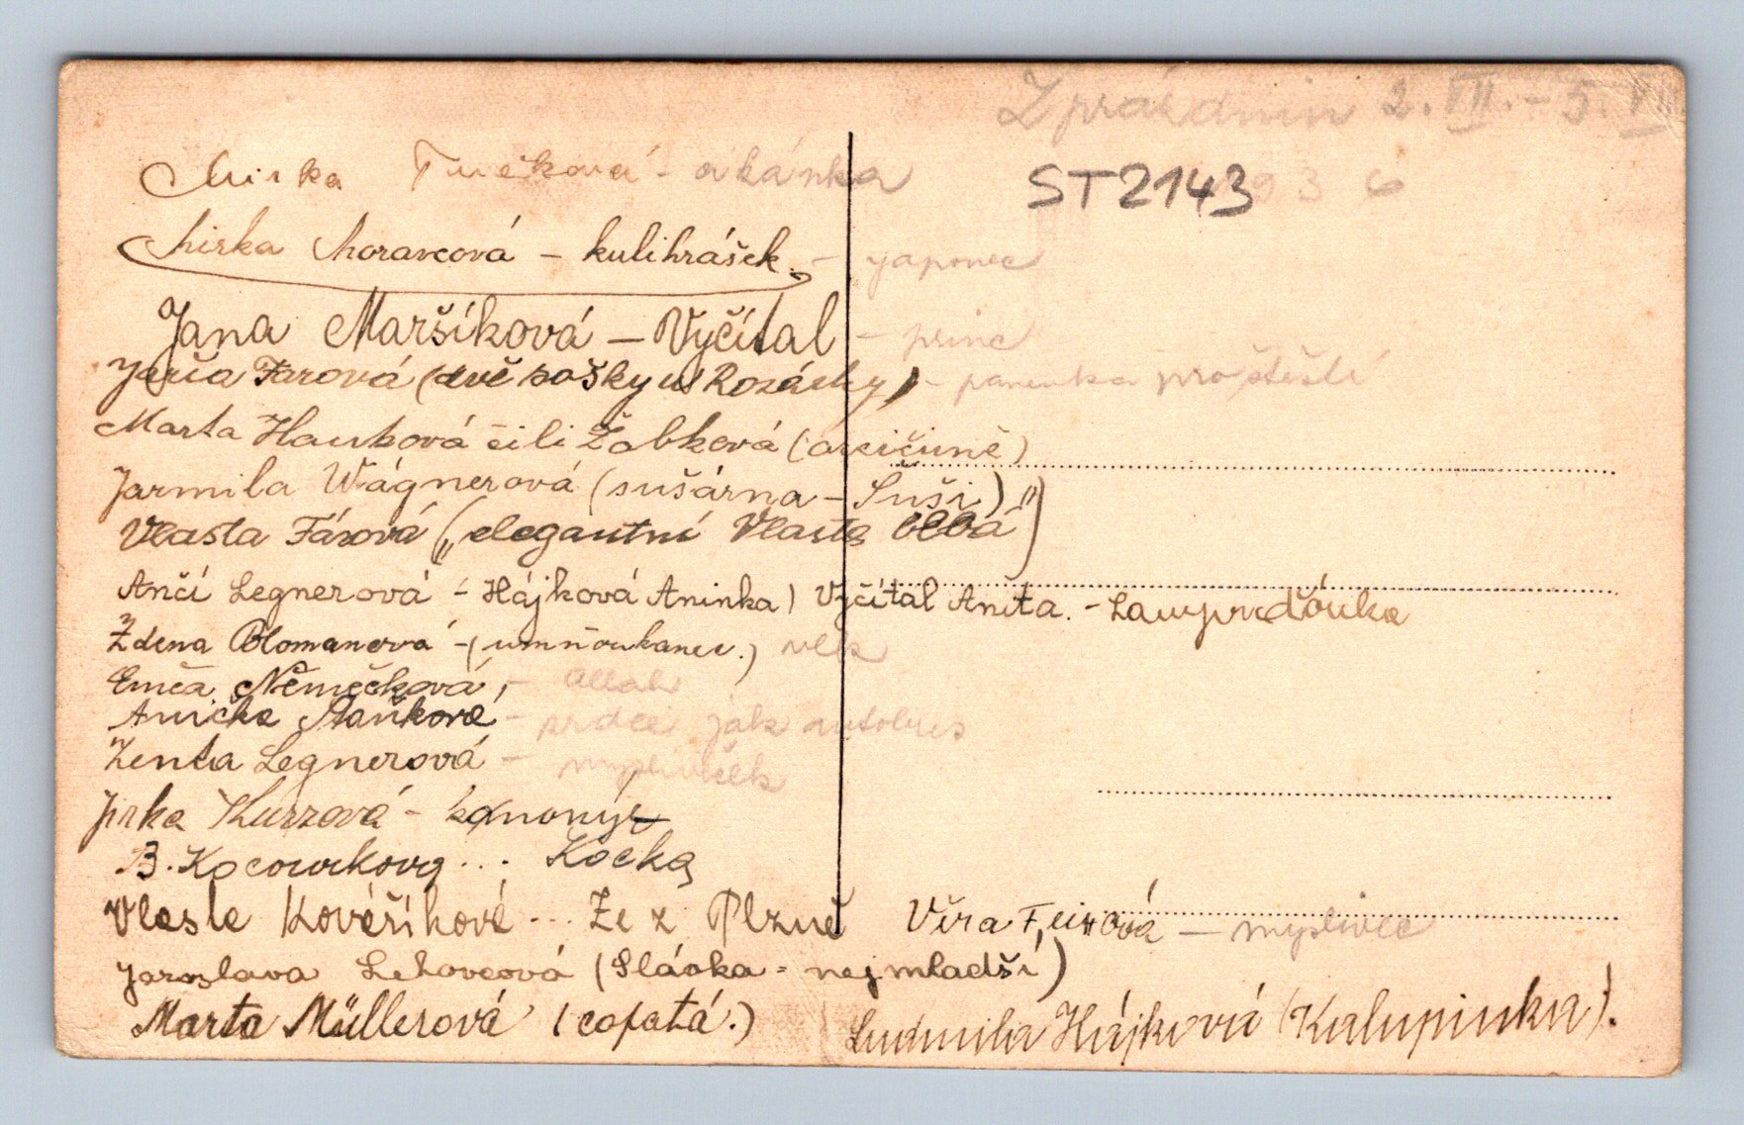 Z prázdnin 2. VII. - 5. VII
1936
ST2143
Mirka Tučková - cikánka
Mirka Moravcová - kulihrášek. - japonec
Jana Maršíková - Vyčítal - princ
Jarča Farová (dvě sošky u Rozárky) - panenka pro štěstí
Marta Haubová čili Žabková (arcičuně)
Jarmila Wágnerová (sušárna - Suši)
Vlasta Fárová („elegantní Vlasta blbá")
Ančí Legnerová - Hájková Aninka) Vyčítal Anita. -
Zdena Olomanová - (umňoukanec.) vlk
Emča Němečková, - Allah
Anička Maňková - srdce jak autobus
Zenta Legnerová - mysliveček
Jirka Kurzová - kanonýr
B. Kocourková ... Kočka
Vlasta Kovářiková ... Ze z Plzně
Věra - myslivec
Jaroslava Lehovcová (Slávka - nejmladší)
Marta Müllerová (copatá.)
Ludmila Hájková (Kalupinka).